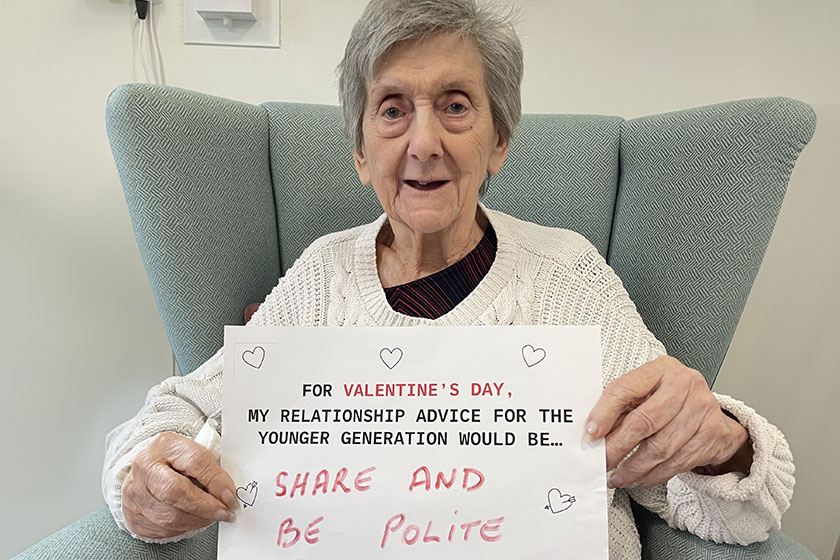 FOR VALENTINE'S DAY,
MY RELATIONSHIP ADVICE FOR THE
YOUNGER GENERATION WOULD BE...
SHARE AND
BE POLITE